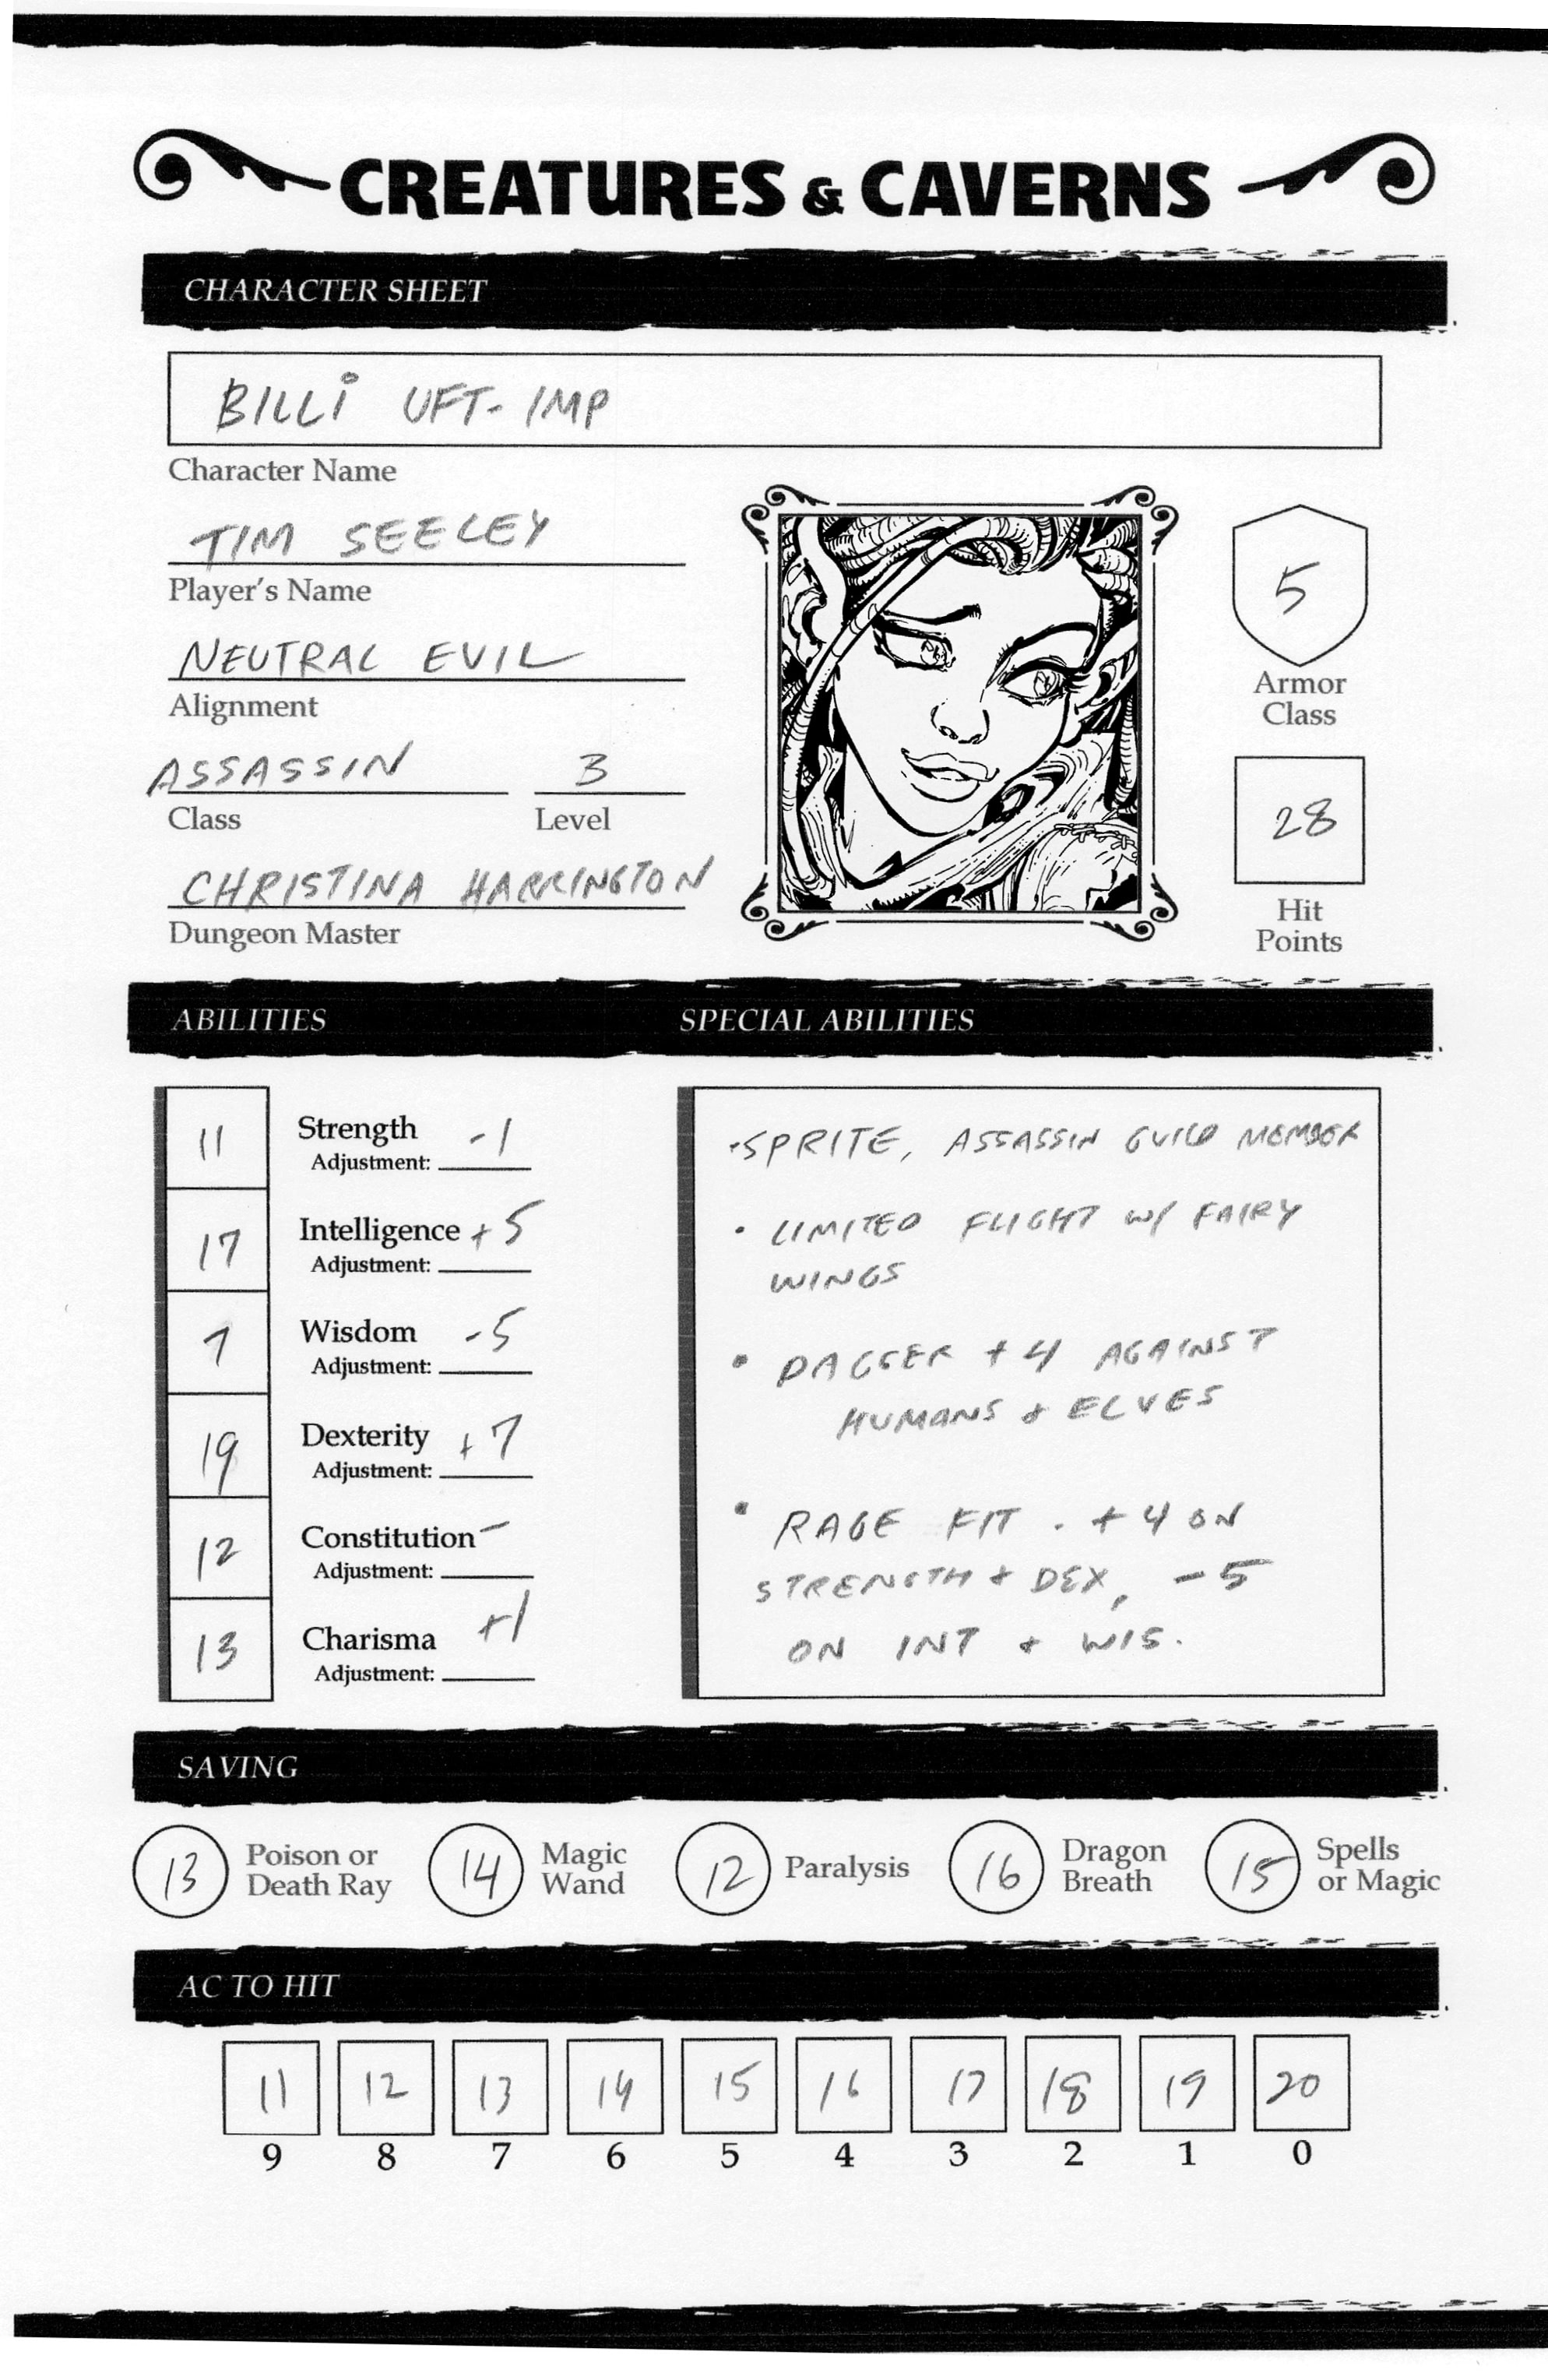 CREATURES & CAVERNS
CHARACTER SHEET
BILLI UFT-IMP
Character Name
TIM SEELEY
Player's Name
NEUTRAL EVIL
Alignment
ASSASSIN 3
Class Level
CHRISTINA HARRINGTON
Dungeon Master
5
Armor
Class
28
Hit
Points
ABILITIES SPECIAL ABILITIES
11 Strength -1
Adjustment:
17 Intelligence +5
Adjustment:
7 Wisdom -5
Adjustment:
19 Dexterity +7
Adjustment:
12 Constitution -
Adjustment:
13 Charisma +1
Adjustment:
• SPRITE, ASSASSIN GUILD MEMBER
• LIMITED FLIGHT W/ FAIRY
WINGS
• DAGGER +4 AGAINST
HUMANS & ELVES
• RAGE FIT. +4 ON
STRENGTH & DEX, -5
ON INT & WIS.
SAVING
13 Poison or
Death Ray
14 Magic
Wand
12 Paralysis
16 Dragon
Breath
15 Spells
or Magic
AC TO HIT
11 12 13 14 15 16 17 18 19 20
9 8 7 6 5 4 3 2 1 0